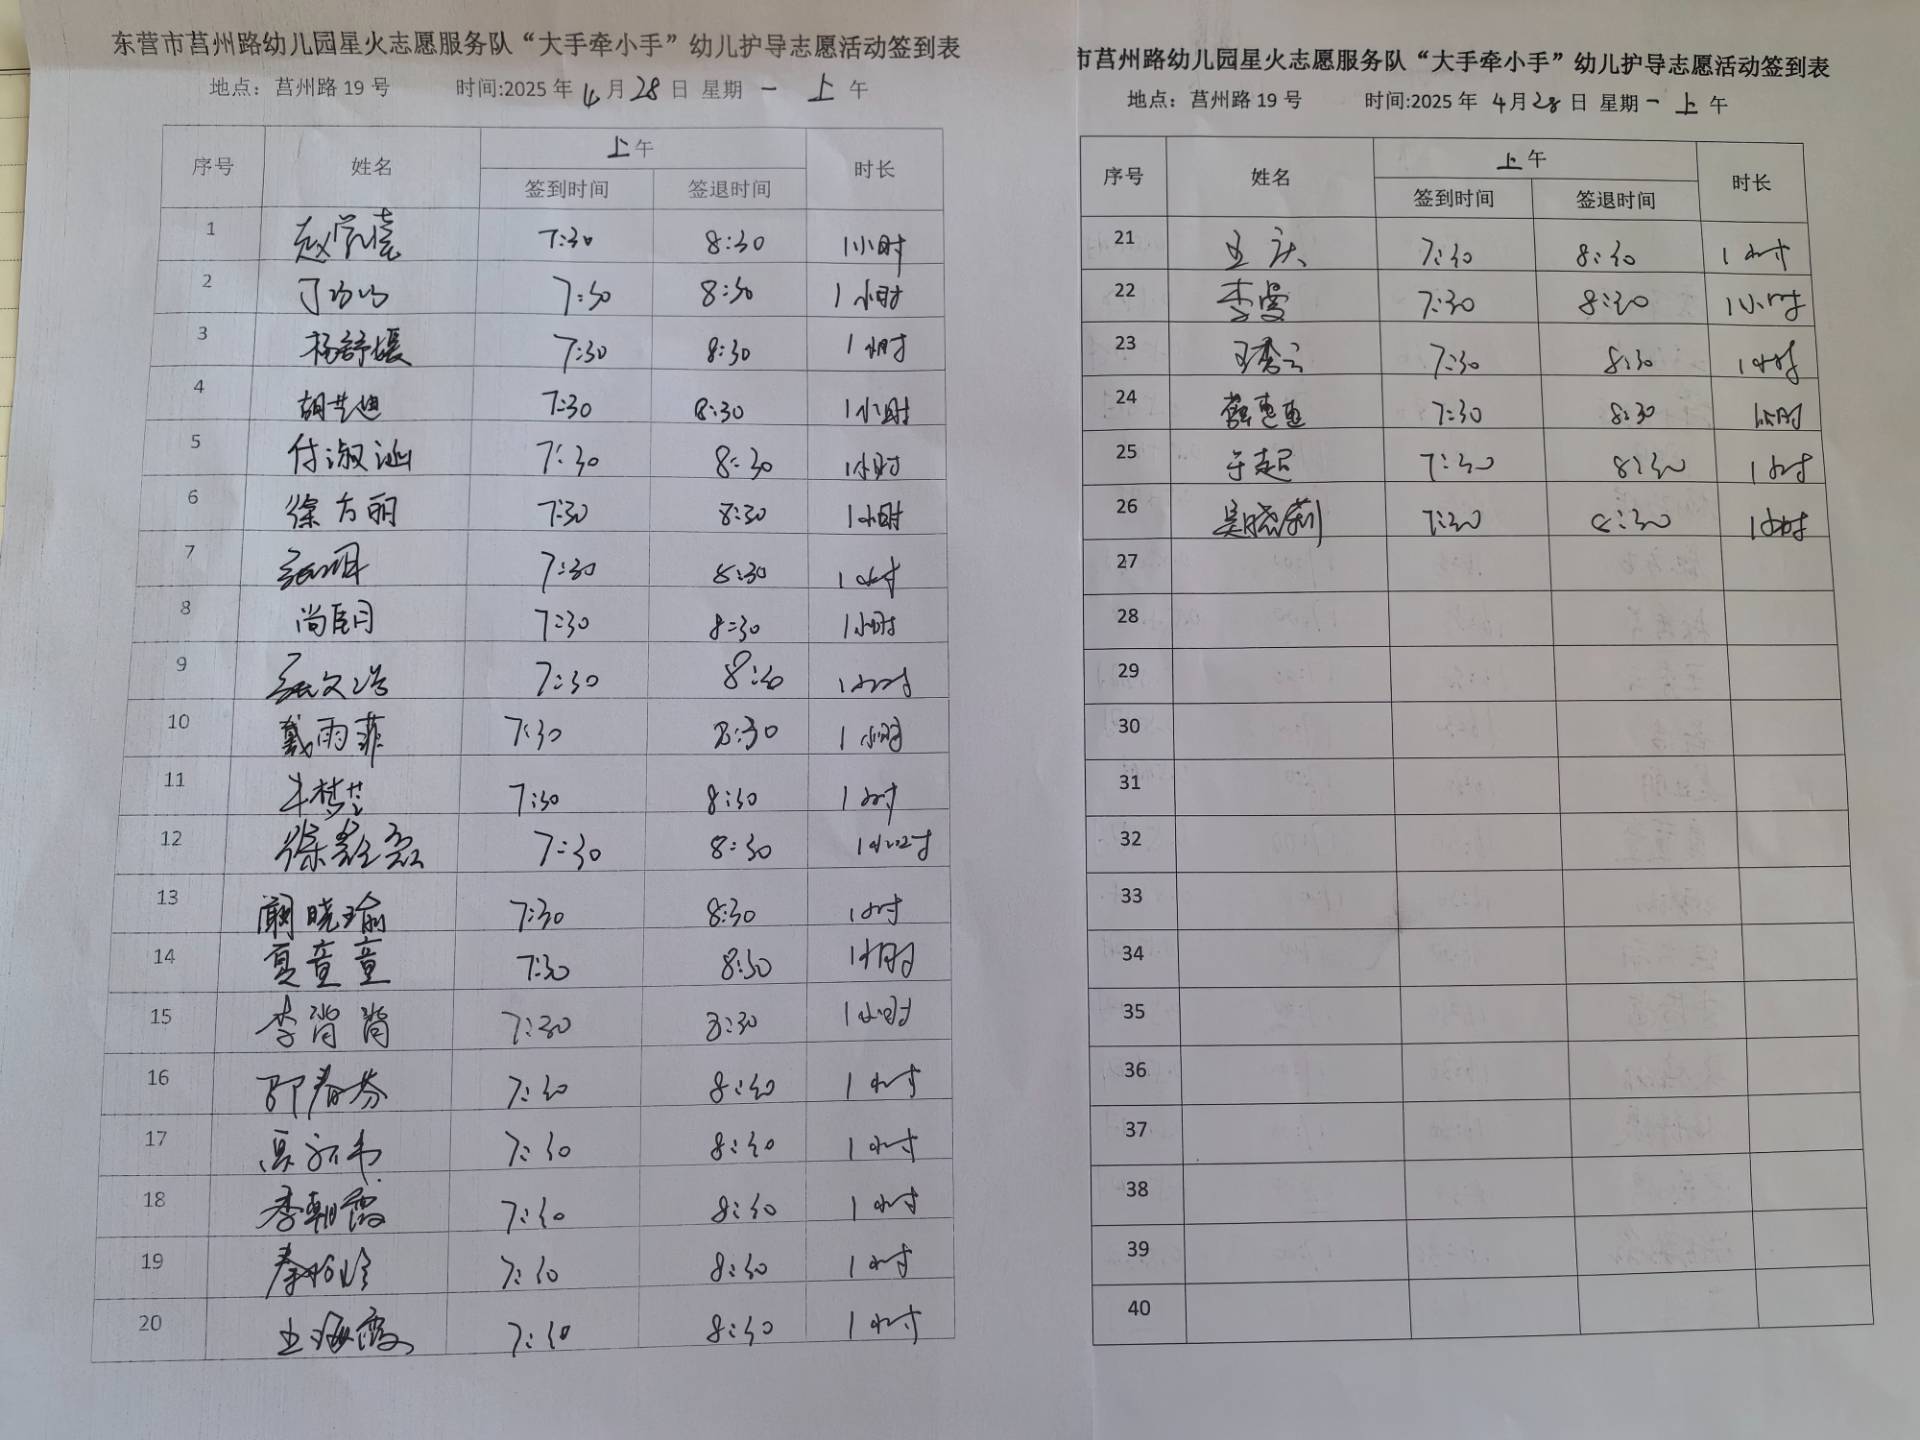 东营市莒州路幼儿园星火志愿服务队“大手牵小手”幼儿护导志愿活动签到表
地点：莒州路 19 号 时间:2025 年 4 月 28 日 星期 一 上 午
序号 姓名 上午 时长
签到时间 签退时间
1 赵 7:30 8:30 1小时
2 丁 7:30 8:30 1小时
3 杨舒媛 7:30 8:30 1小时
4 胡艺迪 7:30 8:30 1小时
5 付淑汕 7:30 8:30 1小时
6 徐方丽 7:30 8:30 1小时
7 7:30 8:30 1小时
8 尚 7:30 8:30 1小时
9 张文浩 7:30 8:30 1小时
10 戴雨菲 7:30 8:30 1小时
11 牛梦 7:30 8:30 1小时
12 徐 7:30 8:30 1小时
13 阚晓瑜 7:30 8:30 1小时
14 夏童童 7:30 8:30 1小时
15 李 7:30 8:30 1小时
16 邵春芬 7:30 8:30 1小时
17 7:30 8:30 1小时
18 李朝霞 7:30 8:30 1小时
19 秦 7:30 8:30 1小时
20 王海霞 7:30 8:30 1小时
市莒州路幼儿园星火志愿服务队“大手牵小手”幼儿护导志愿活动签到表
地点：莒州路 19 号 时间:2025 年 4 月 28 日 星期 一 上 午
序号 姓名 上午 时长
签到时间 签退时间
21 王庆 7:30 8:30 1小时
22 李曼 7:30 8:30 1小时
23 王秀云 7:30 8:30 1小时
24 7:30 8:30 1小时
25 于超 7:30 8:30 1小时
26 吴晓莉 7:30 8:30 1小时
27
28
29
30
31
32
33
34
35
36
37
38
39
40